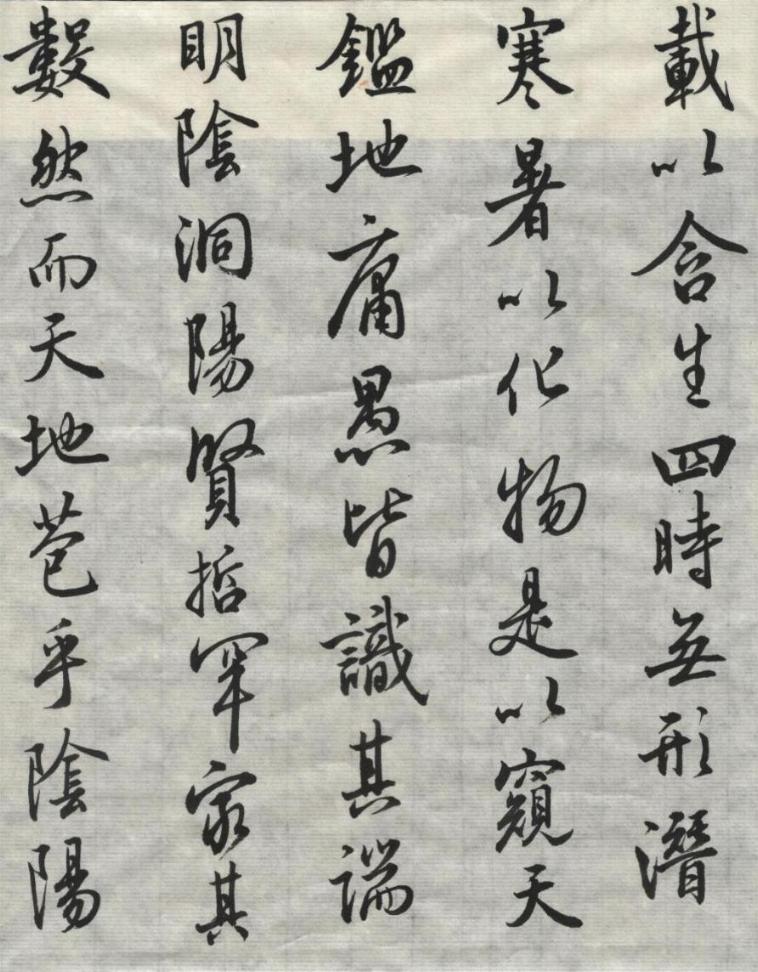 載以含生四時無形潛
寒暑以化物是以窺天
鑑地庸愚皆識其端
明陰洞陽賢哲罕窮其
數然而天地苞乎陰陽